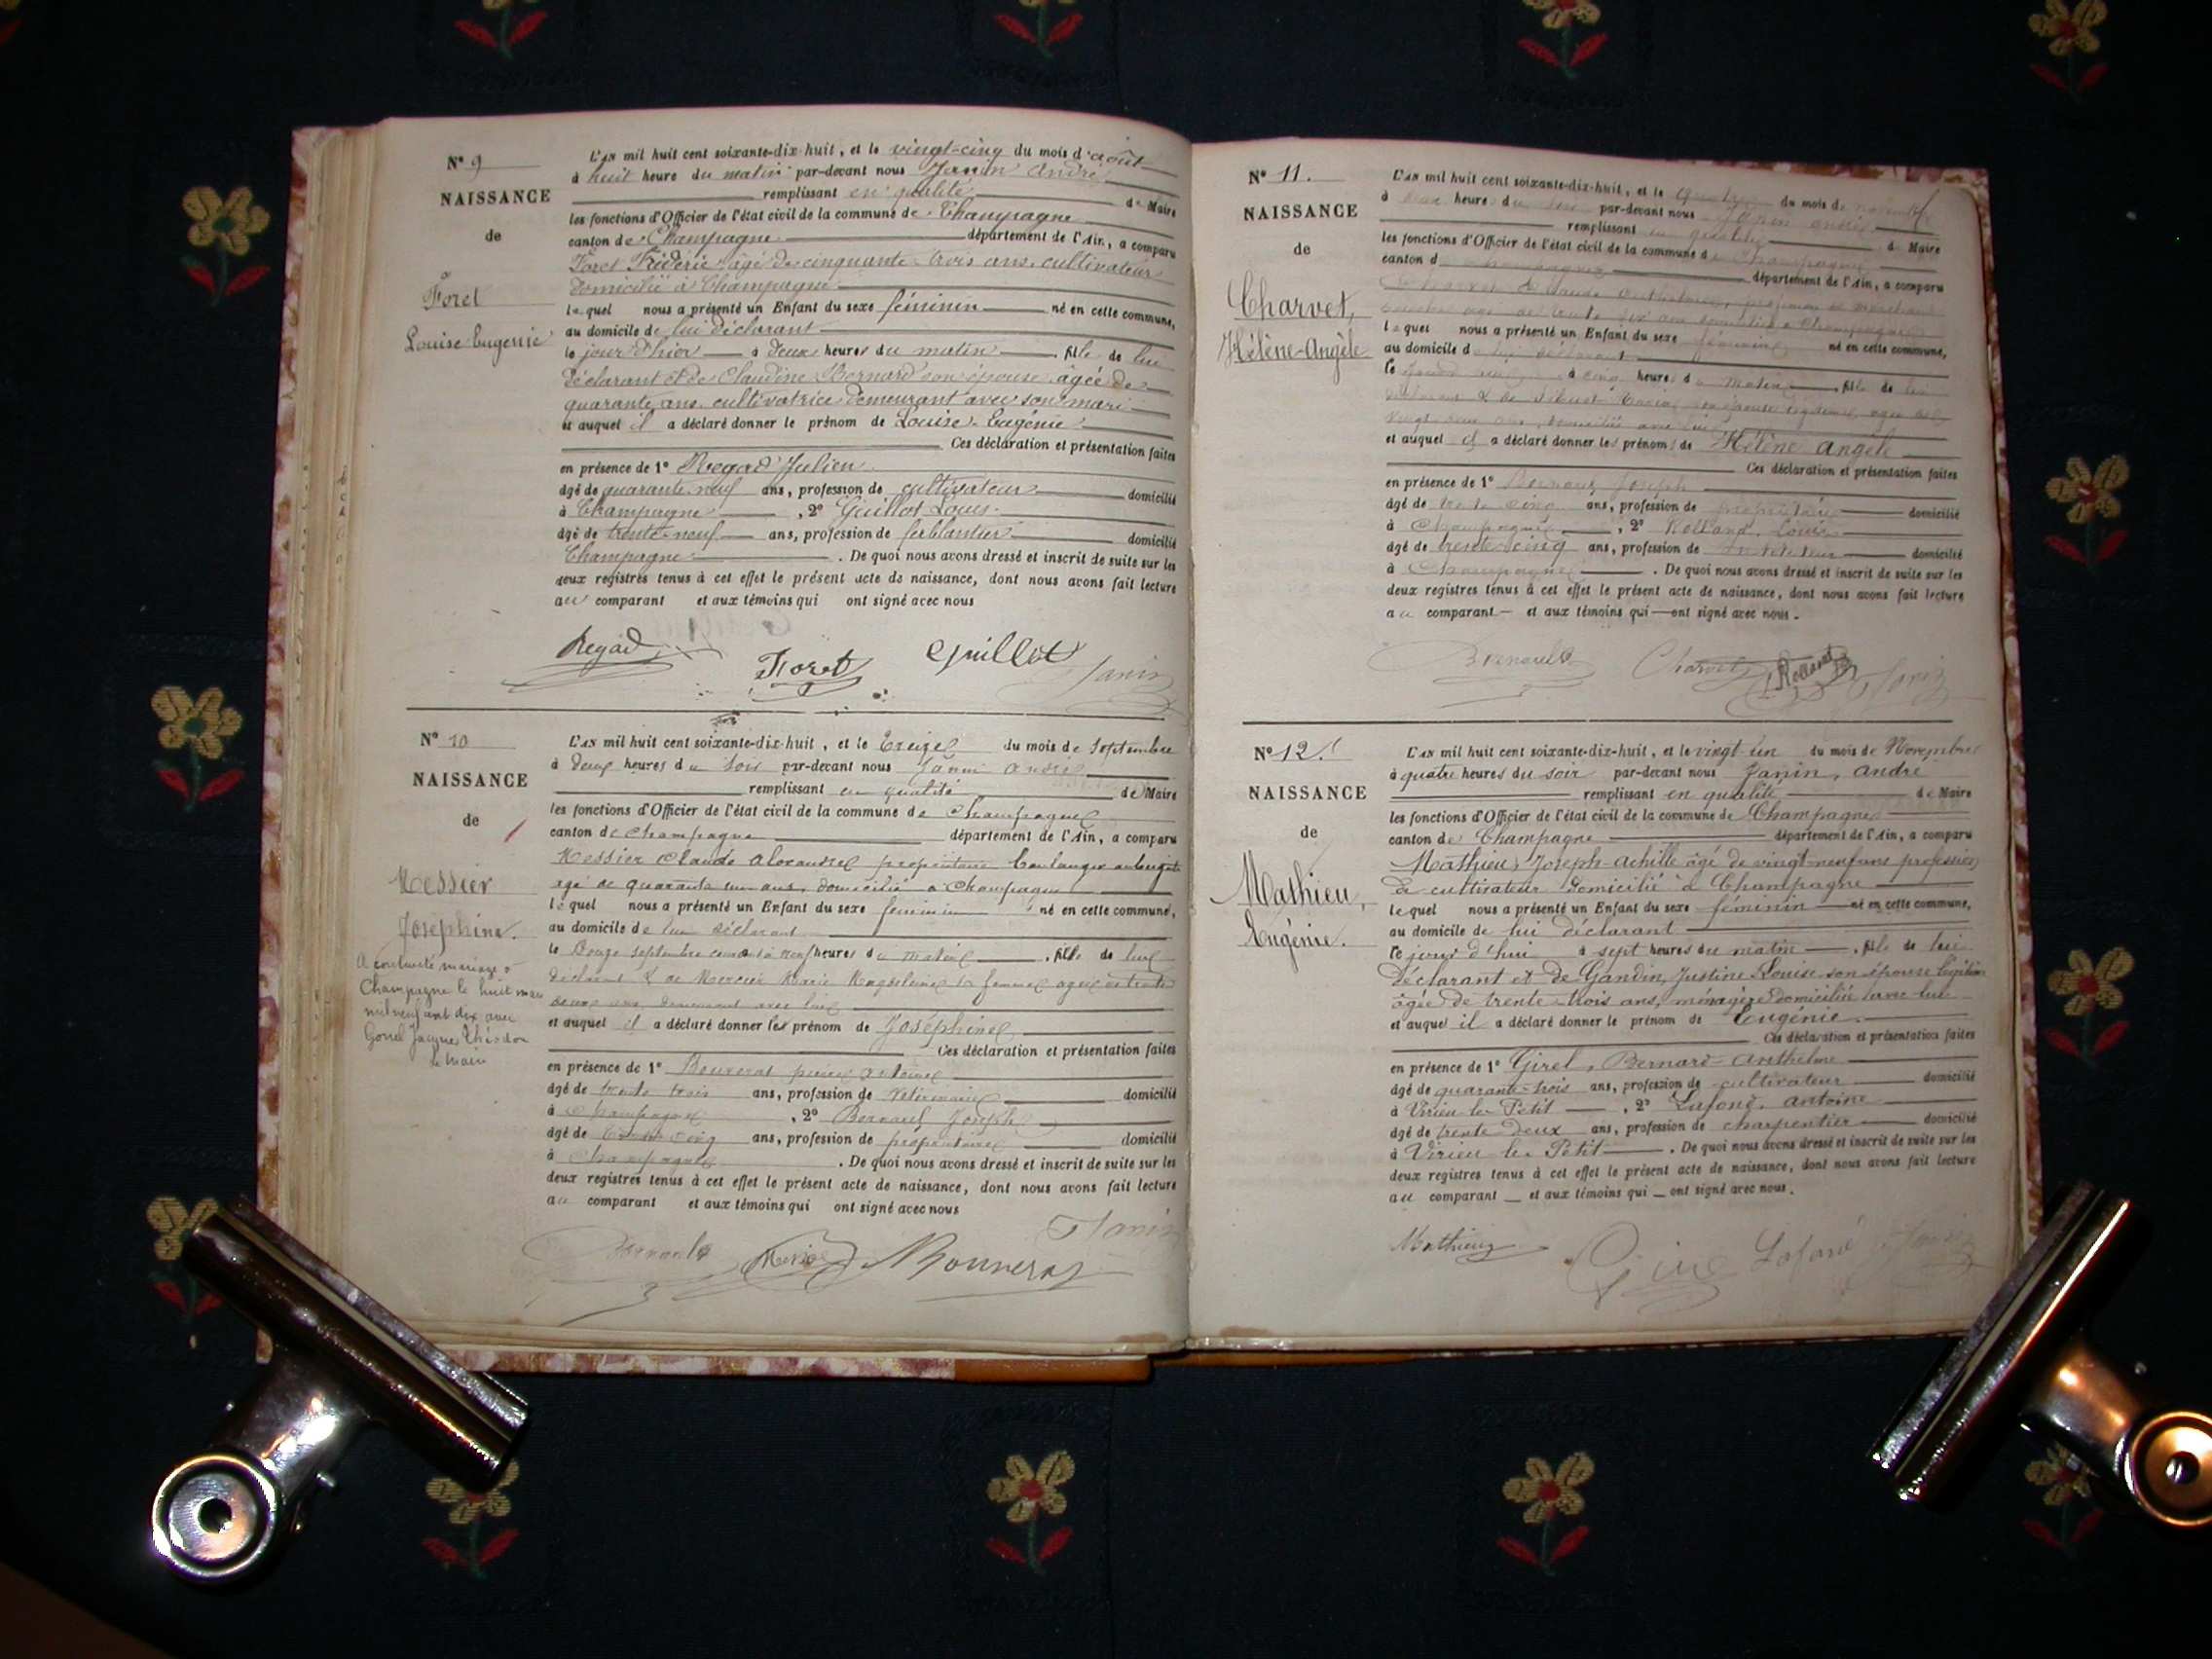 N° 9
NAISSANCE
de
Foret
Louise Eugénie
L'AN mil huit cent soixante-dix-huit, et le vingt-cinq du mois d'août
à huit heure du matin par-devant nous Janin André
remplissant en qualité de Maire
les fonctions d'Officier de l'état civil de la commune de Champagne
canton de Champagne département de l'Ain, a comparu
Foret Fréderic âgé de cinquante-trois ans, cultivateur
domicilié à Champagne
lequel nous a présenté un Enfant du sexe féminin né en cette commune,
au domicile de lui déclarant
le jour d'hier à deux heures du matin, fille de lui
déclarant et de Claudine Bernard son épouse âgée de
quarante ans, cultivatrice demeurant avec son mari
et auquel il a déclaré donner le prénom de Louise-Eugénie
Ces déclaration et présentation faites
en présence de 1° Regad Julien
âgé de quarante-neuf ans, profession de cultivateur domicilié
à Champagne, 2° Guillot Louis
âgé de trente-neuf ans, profession de ferblantier domicilié
Champagne. De quoi nous avons dressé et inscrit de suite sur les
deux registres tenus à cet effet le présent acte de naissance, dont nous avons fait lecture
au comparant et aux témoins qui ont signé avec nous
Regad Foret Guillot Janin
N° 10
NAISSANCE
de
Messier
Joséphine.
A contracté mariage à
Champagne le huit mai
mil neuf cent dix avec
Jacques Théodore
le Maire
L'AN mil huit cent soixante-dix-huit, et le treize du mois de Septembre
à deux heures du soir par-devant nous Janin André
remplissant en qualité de Maire
les fonctions d'Officier de l'état civil de la commune de Champagne
canton de Champagne département de l'Ain, a comparu
Messier Claude Alexandre propriétaire boulanger aubergiste
âgé de quarante un ans, domicilié à Champagne
lequel nous a présenté un Enfant du sexe féminin né en cette commune,
au domicile de lui déclarant
le Douze septembre courant à neuf heures du matin, fille de lui
déclarant & de Mercier Marie Magdeleine sa femme âgée de trente
deux ans, demeurant avec lui
et auquel il a déclaré donner les prénom de Joséphine
Ces déclaration et présentation faites
en présence de 1° Bouverat
âgé de trente trois ans, profession de Vétérinaire domicilié
à Champagne, 2° Bernard Joseph
âgé de trente cinq ans, profession de propriétaire domicilié
à Champagne. De quoi nous avons dressé et inscrit de suite sur les
deux registres tenus à cet effet le présent acte de naissance, dont nous avons fait lecture
au comparant et aux témoins qui ont signé avec nous
Janin
Bernard Messier Bouverat
N° 11.
NAISSANCE
de
Charvet,
Hélène-Angèle
L'AN mil huit cent soixante-dix-huit, et le du mois de novembre
à heure du soir par-devant nous Janin André
remplissant en qualité de Maire
les fonctions d'Officier de l'état civil de la commune de Champagne
canton de Champagne département de l'Ain, a comparu
Charvet Claude Anthelme, profession de
âgé de trente six ans domicilié à Champagne
lequel nous a présenté un Enfant du sexe féminin né en cette commune,
au domicile de lui déclarant
le à cinq heures du matin, fille de lui
déclarant & de Marie son épouse légitime âgée de
vingt ans, domiciliée avec lui
et auquel il a déclaré donner les prénoms de Hélène Angèle
Ces déclaration et présentation faites
en présence de 1° Bernard Joseph
âgé de trente cinq ans, profession de propriétaire domicilié
à Champagne, 2° Rolland Louis
âgé de trente-cinq ans, profession de domicilié
à Champagne. De quoi nous avons dressé et inscrit de suite sur les
deux registres tenus à cet effet le présent acte de naissance, dont nous avons fait lecture
au comparant et aux témoins qui ont signé avec nous.
Bernard Charvet Rolland Janin
N° 12.
NAISSANCE
de
Mathieu,
Eugénie.
L'AN mil huit cent soixante-dix-huit, et le vingt-un du mois de Novembre
à quatre heures du soir par-devant nous Janin, André
remplissant en qualité de Maire
les fonctions d'Officier de l'état civil de la commune de Champagne
canton de Champagne département de l'Ain, a comparu
Mathieu, Joseph-Achille âgé de vingt-neuf ans profession
de cultivateur domicilié à Champagne
lequel nous a présenté un Enfant du sexe féminin né en cette commune,
au domicile de lui déclarant
le jour d'hui à sept heures du matin, fille de lui
déclarant et de Gandin, Justine Louise son épouse légitime
âgée de trente-trois ans, ménagère domiciliée avec lui
et auquel il a déclaré donner le prénom de Eugénie.
Ces déclaration et présentation faites
en présence de 1° Girel, Bernard-Anthelme
âgé de quarante-trois ans, profession de cultivateur domicilié
à Virieu-le-Petit, 2° Lafond, Antoine
âgé de trente-deux ans, profession de charpentier domicilié
à Virieu-le-Petit. De quoi nous avons dressé et inscrit de suite sur les
deux registres tenus à cet effet le présent acte de naissance, dont nous avons fait lecture
au comparant et aux témoins qui ont signé avec nous.
Mathieu Girel Lafond Janin